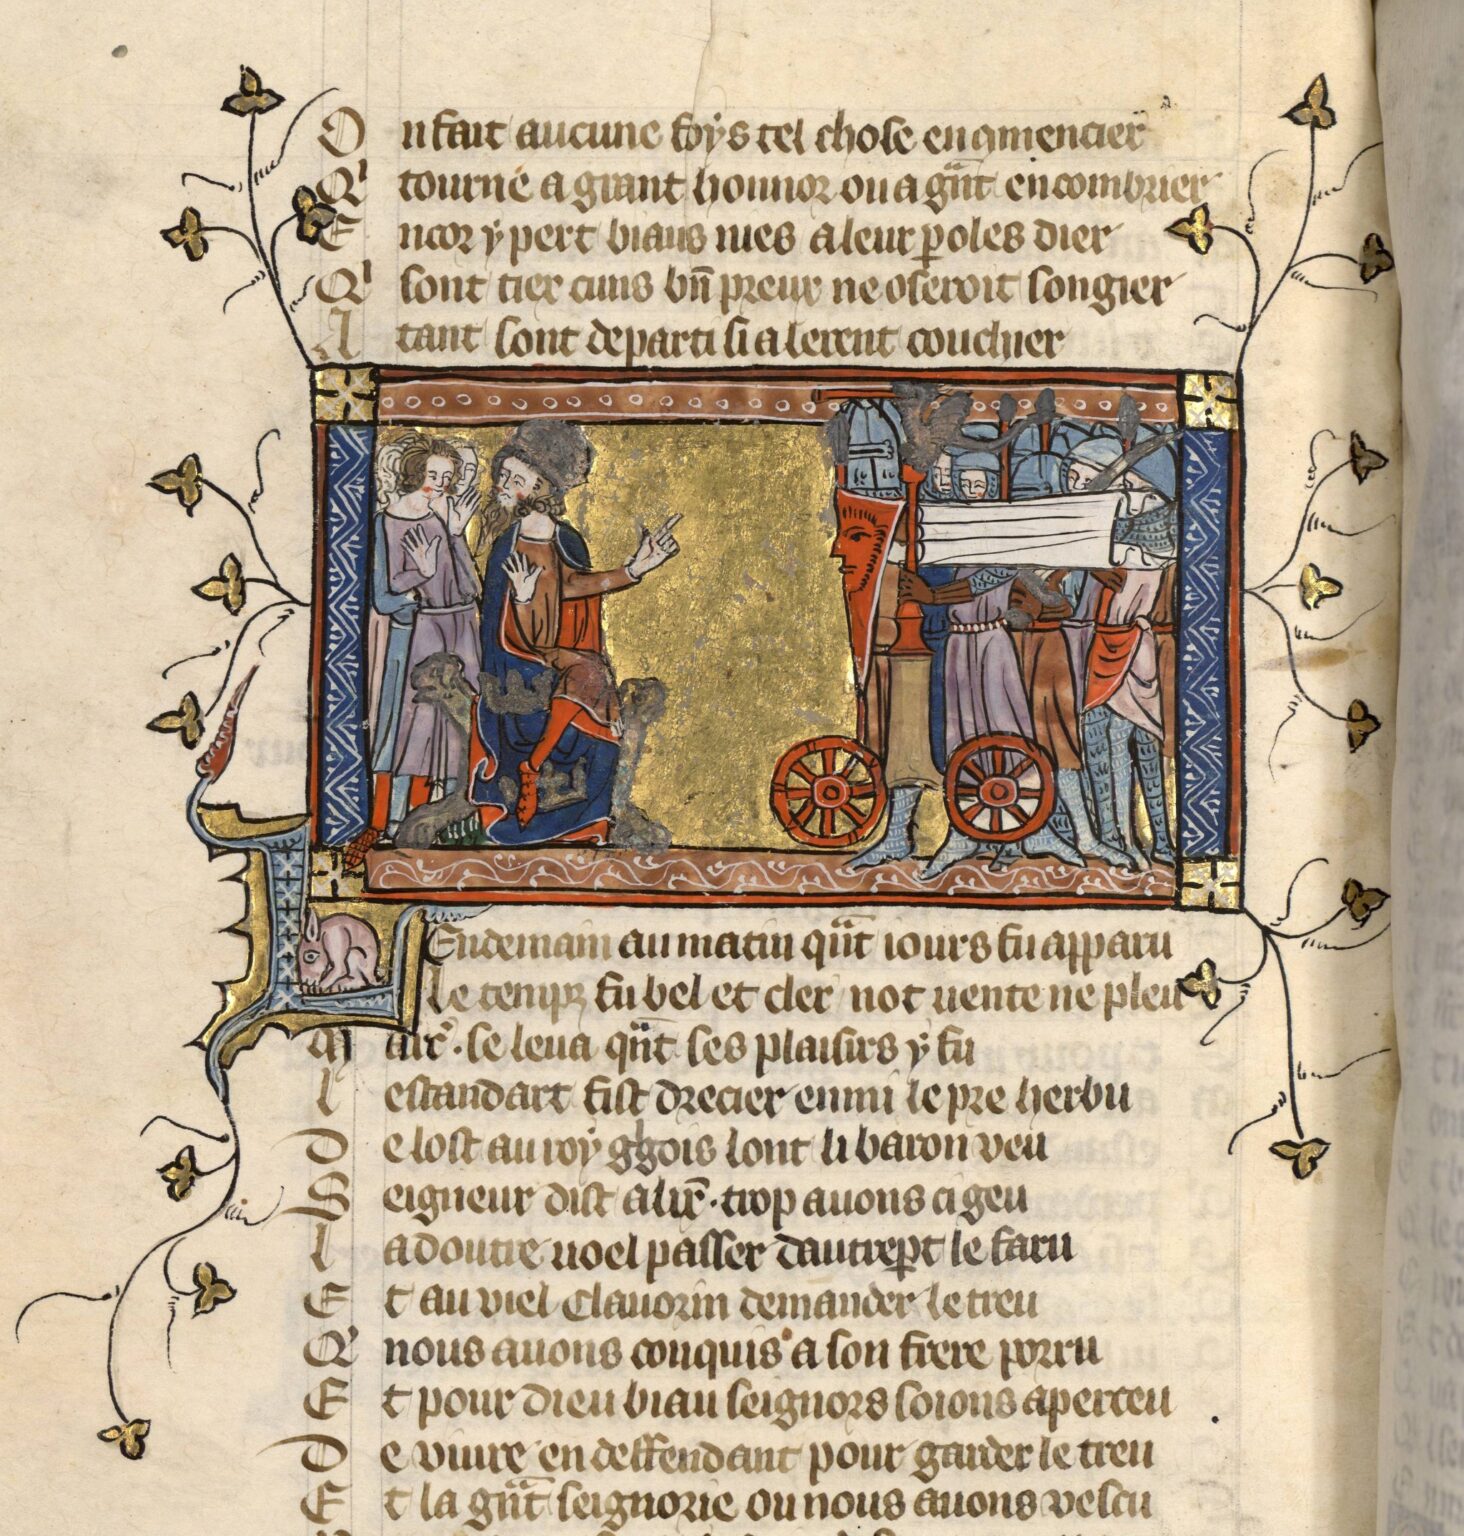 On fait aucune foys tel chose enqmencier
Q' tourne a grant honnor ou a gnt encombrier
Encor y pert biaus nies a leur poles dier
Q' sont tier cuis bn preux ne oseroit songier
A tant sont departi si alerent couchier
Lendemain au matin qnt iours fu apparu
le temps fu bel et cler not uente ne pleu
se leua qnt ses plaisirs y fu
l estandart fist drecier enmi le pre herbu
De lost au roy gghois lont li baron veu
Seigneur dist alix . trop auons ci geu
la doutre uoel passer dautrept le faru
Et au viel Clauorin demander le treu
Q' nous auons conquis a son frere porru
Et pour dieu biau seignors soions aperceu
De viure en deffendant pour garder le treu
Et la gnt seignorie ou nous auons vescu